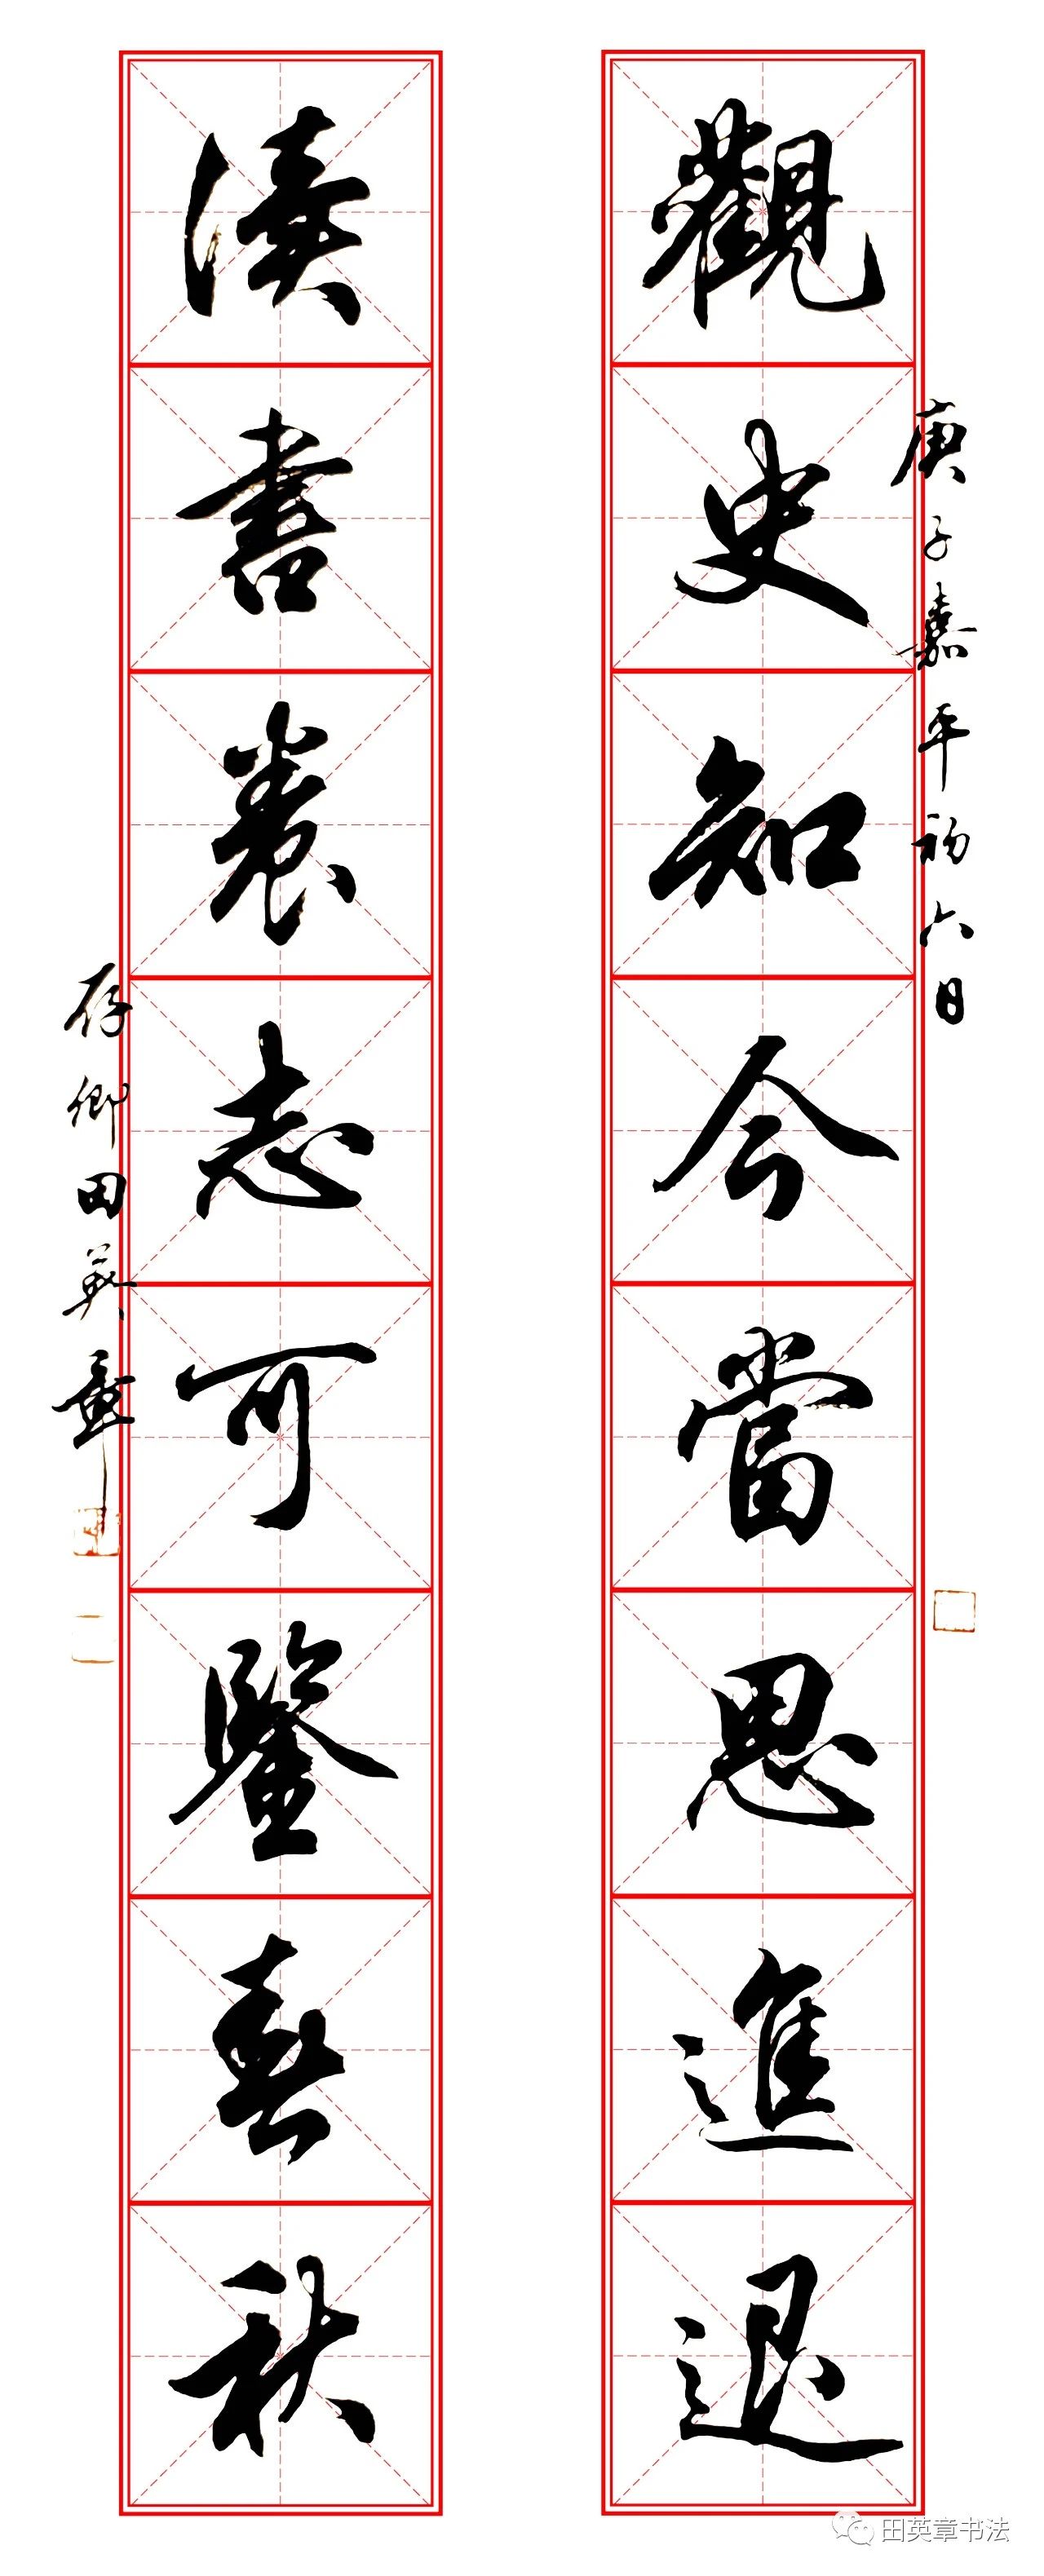 觀史知今當思進退
庚子嘉平初六日
讀書養志可鑒春秋
存卿田英章
田英章书法